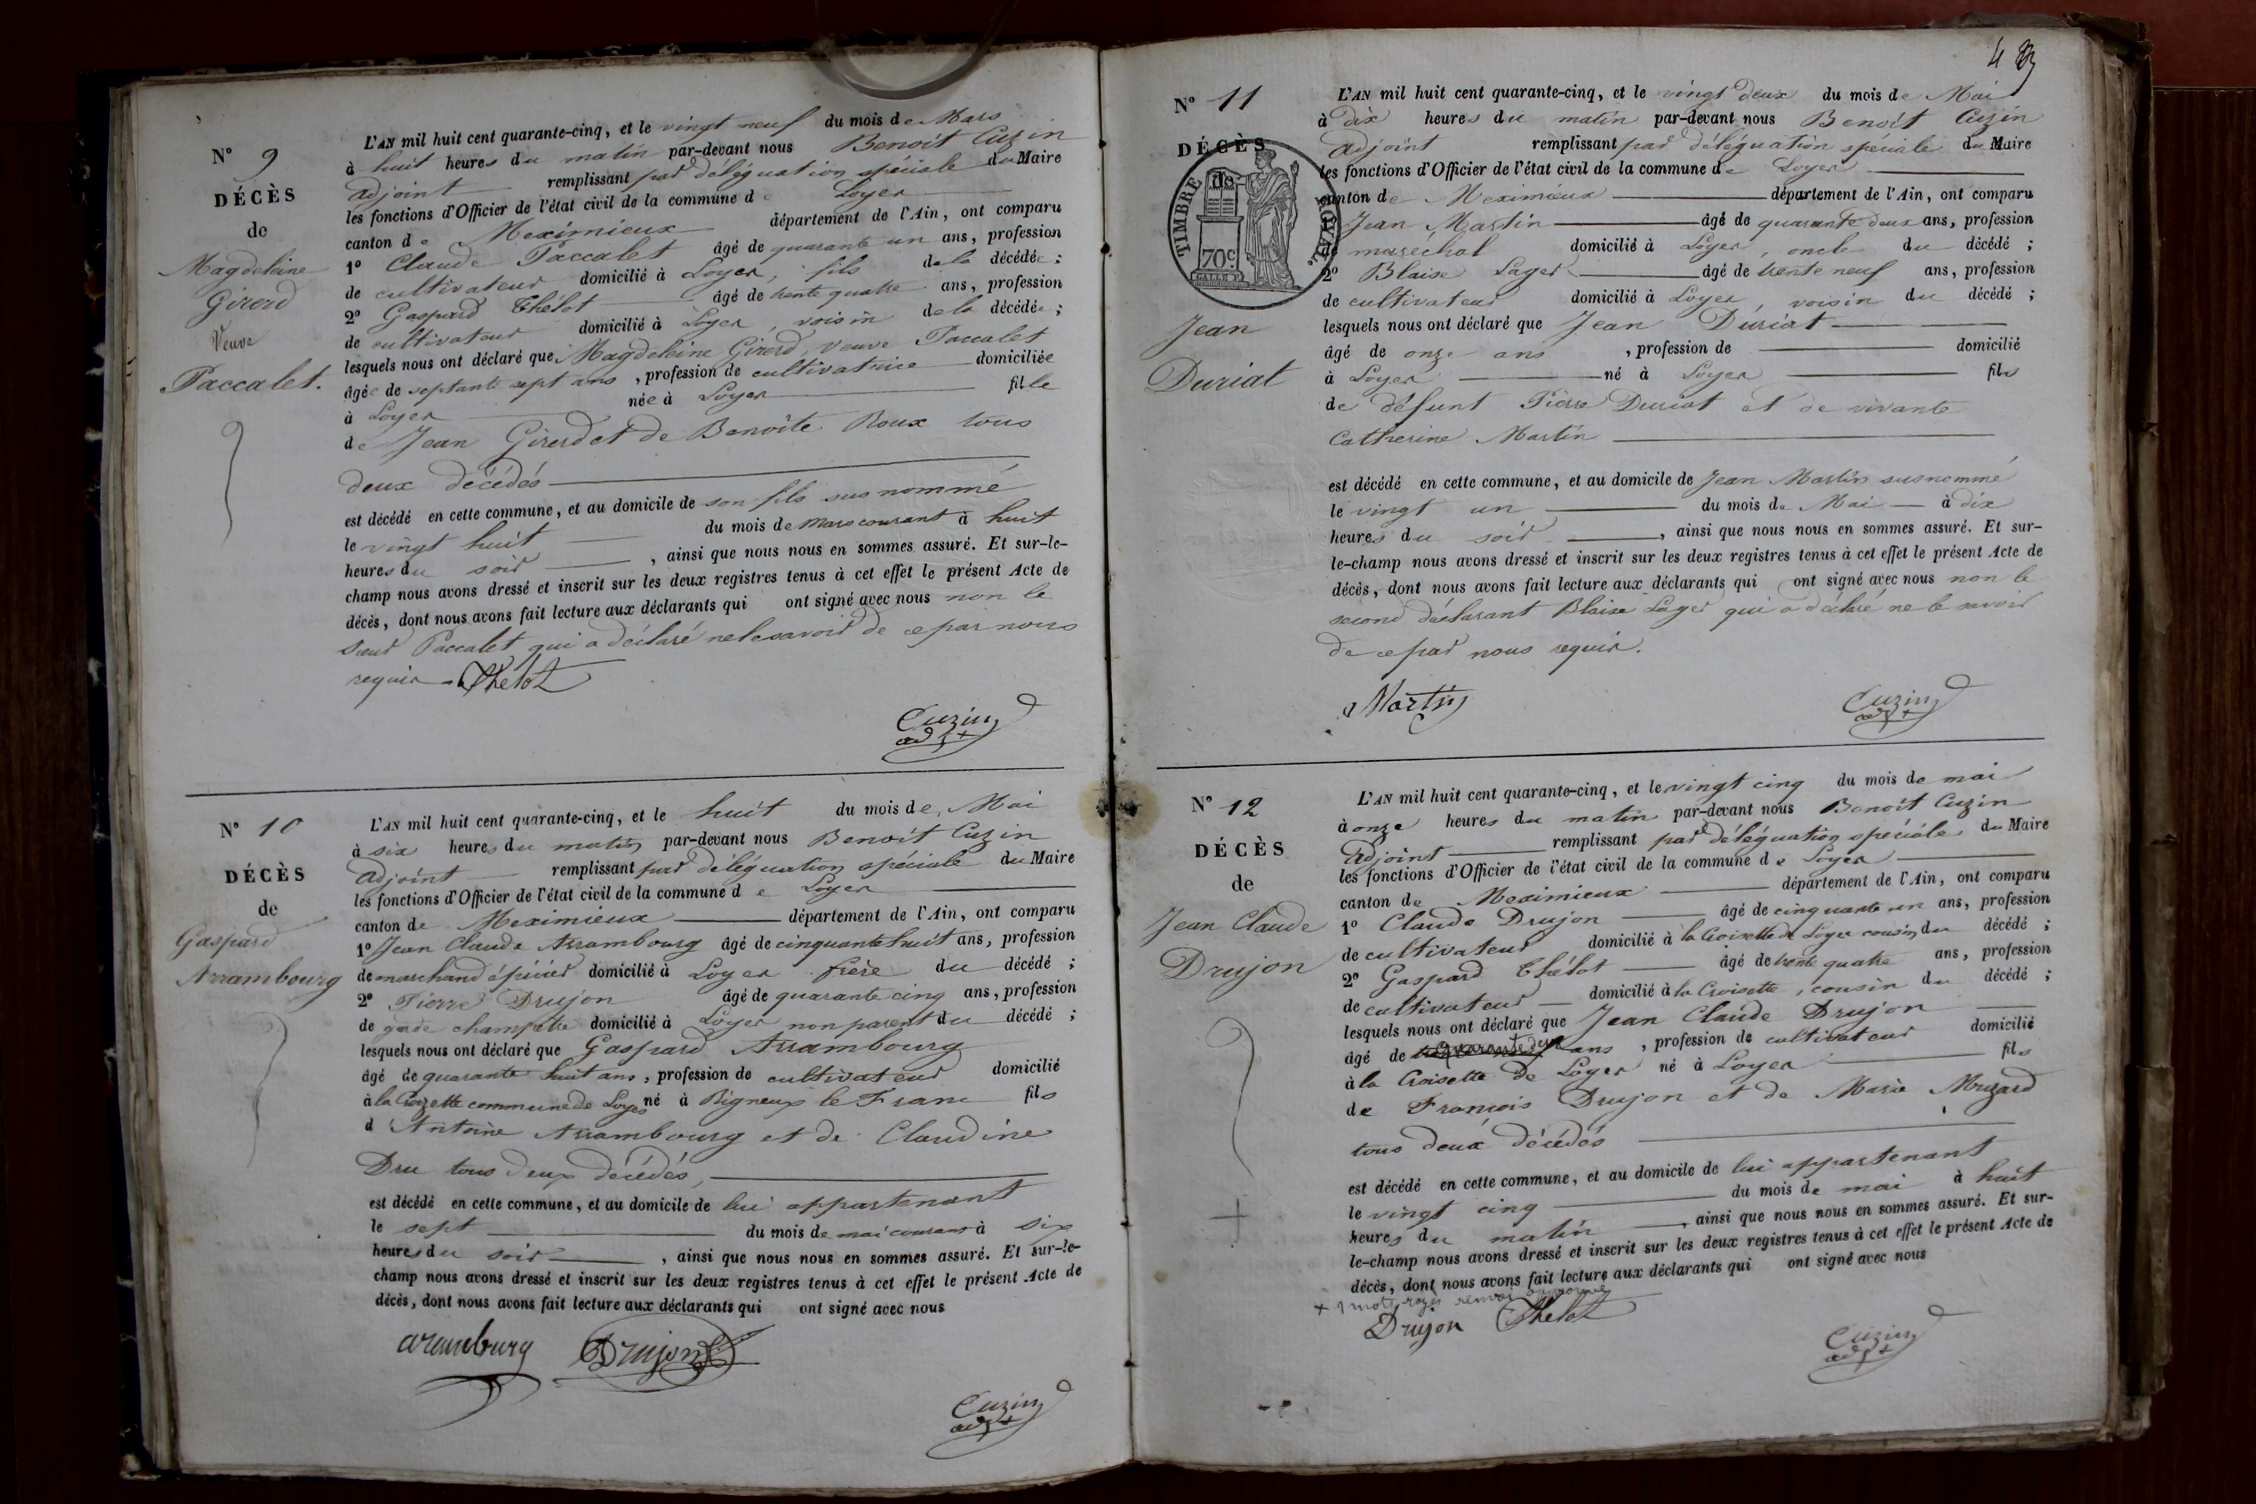 N° 9
DÉCÈS
de
Magdeleine
Girerd
Veuve
Paccalet.
L'AN mil huit cent quarante-cinq, et le vingt neuf du mois de Mars
à huit heures du matin par-devant nous Benoit Cuzin
adjoint remplissant par délégation spéciale du Maire
les fonctions d'Officier de l'état civil de la commune de Loyes
canton de Meximieux département de l'Ain, ont comparu
1° Claude Paccalet âgé de quarante un ans, profession
de cultivateur domicilié à Loyes, fils de la décédée ;
2° Gaspard Thélot âgé de trente quatre ans, profession
de cultivateur domicilié à Loyes, voisin de la décédée ;
lesquels nous ont déclaré que Magdeleine Girerd, veuve Paccalet
âgée de septante sept ans, profession de cultivatrice domiciliée
à Loyes née à Loyes fille
de Jean Girerd et de Benoîte Roux tous
deux décédés
est décédé en cette commune, et au domicile de son fils sus nommé
le vingt huit du mois de Mars courant à huit
heures du soir, ainsi que nous nous en sommes assuré. Et sur-le-
champ nous avons dressé et inscrit sur les deux registres tenus à cet effet le présent Acte de
décès, dont nous avons fait lecture aux déclarants qui ont signé avec nous non le
sieur Paccalet qui a déclaré ne le savoir de ce par nous
requis - Thelot
Cuzin
adjt
N° 10
DÉCÈS
de
Gaspard
Arrambourg
L'AN mil huit cent quarante-cinq, et le huit du mois de Mai
à six heures du matin par-devant nous Benoit Cuzin
adjoint remplissant par délégation spéciale du Maire
les fonctions d'Officier de l'état civil de la commune de Loyes
canton de Meximieux département de l'Ain, ont comparu
1° Jean Claude Arrambourg âgé de cinquante huit ans, profession
de marchand épicier domicilié à Loyes frère du décédé ;
2° Pierre Drujon âgé de quarante cinq ans, profession
de garde champêtre domicilié à Loyes non parent du décédé ;
lesquels nous ont déclaré que Gaspard Arrambourg
âgé de quarante huit ans, profession de cultivateur domicilié
à la Croizette commune de Loyes né à Rigneux le Franc fils
d'Antoine Arrambourg et de Claudine
Dru tous deux décédés,
est décédé en cette commune, et au domicile de lui appartenant
le sept du mois de mai courant à six
heures du soir, ainsi que nous nous en sommes assuré. Et sur-le-
champ nous avons dressé et inscrit sur les deux registres tenus à cet effet le présent Acte de
décès, dont nous avons fait lecture aux déclarants qui ont signé avec nous
aramburg Drujon
Cuzin
adjt
N° 11
DÉCÈS
de
TIMBRE ROYAL.
70c
Jean
Duriat
L'AN mil huit cent quarante-cinq, et le vingt deux du mois de Mai
à dix heures du matin par-devant nous Benoit Cuzin
adjoint remplissant par délégation spéciale du Maire
les fonctions d'Officier de l'état civil de la commune de Loyes
canton de Meximieux département de l'Ain, ont comparu
Jean Martin âgé de quarante deux ans, profession
de marechal domicilié à Loyes, oncle du décédé ;
2° Blaise Lager âgé de trente neuf ans, profession
de cultivateur domicilié à Loyes, voisin du décédé ;
lesquels nous ont déclaré que Jean Duriat
âgé de onze ans, profession de domicilié
à Loyes né à Loyes fils
de défunt Pierre Duriat et de vivante
Catherine Martin
est décédé en cette commune, et au domicile de Jean Martin susnommé
le vingt un du mois de Mai à dix
heures du soir, ainsi que nous nous en sommes assuré. Et sur-
le-champ nous avons dressé et inscrit sur les deux registres tenus à cet effet le présent Acte de
décès, dont nous avons fait lecture aux déclarants qui ont signé avec nous non le
second déclarant Blaise Lager qui a déclaré ne le savoir
de ce par nous requis.
Martin
Cuzin
adjt
N° 12
DÉCÈS
de
Jean Claude
Drujon
L'AN mil huit cent quarante-cinq, et le vingt cinq du mois de mai
à onze heures du matin par-devant nous Benoit Cuzin
adjoint remplissant par délégation spéciale du Maire
les fonctions d'Officier de l'état civil de la commune de Loyes
canton de Meximieux département de l'Ain, ont comparu
1° Claude Drujon âgé de cinquante un ans, profession
de cultivateur domicilié à la Croisette de Loyes cousin du décédé ;
2° Gaspard Thélot âgé de trente quatre ans, profession
de cultivateur domicilié à la Croisette, cousin du décédé ;
lesquels nous ont déclaré que Jean Claude Drujon
âgé de ans, profession de cultivateur domicilié
à la Croisette de Loyes né à Loyes fils
de François Drujon et de Marie Muzard
tous deux décédés
est décédé en cette commune, et au domicile de lui appartenant
le vingt cinq du mois de mai à huit
heures du matin, ainsi que nous nous en sommes assuré. Et sur-
le-champ nous avons dressé et inscrit sur les deux registres tenus à cet effet le présent Acte de
décès, dont nous avons fait lecture aux déclarants qui ont signé avec nous
Drujon Thelot
Cuzin
adjt